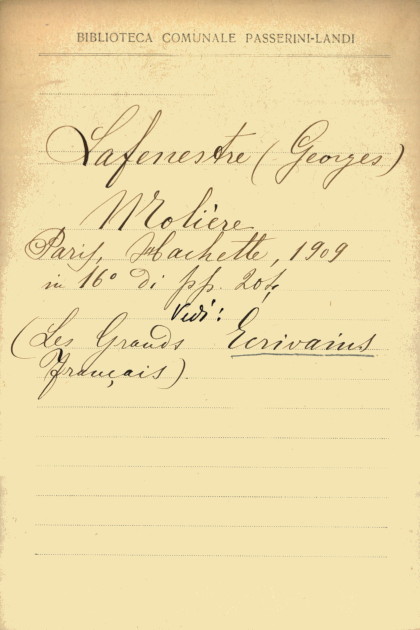 BIBLIOTECA COMUNALE PASSERINI-LANDI
Lafenestre (Georges)
Molière
Paris, Hachette, 1909
in 16° di pp.
Vedi:
(Les Grands Ecrivains
Français).